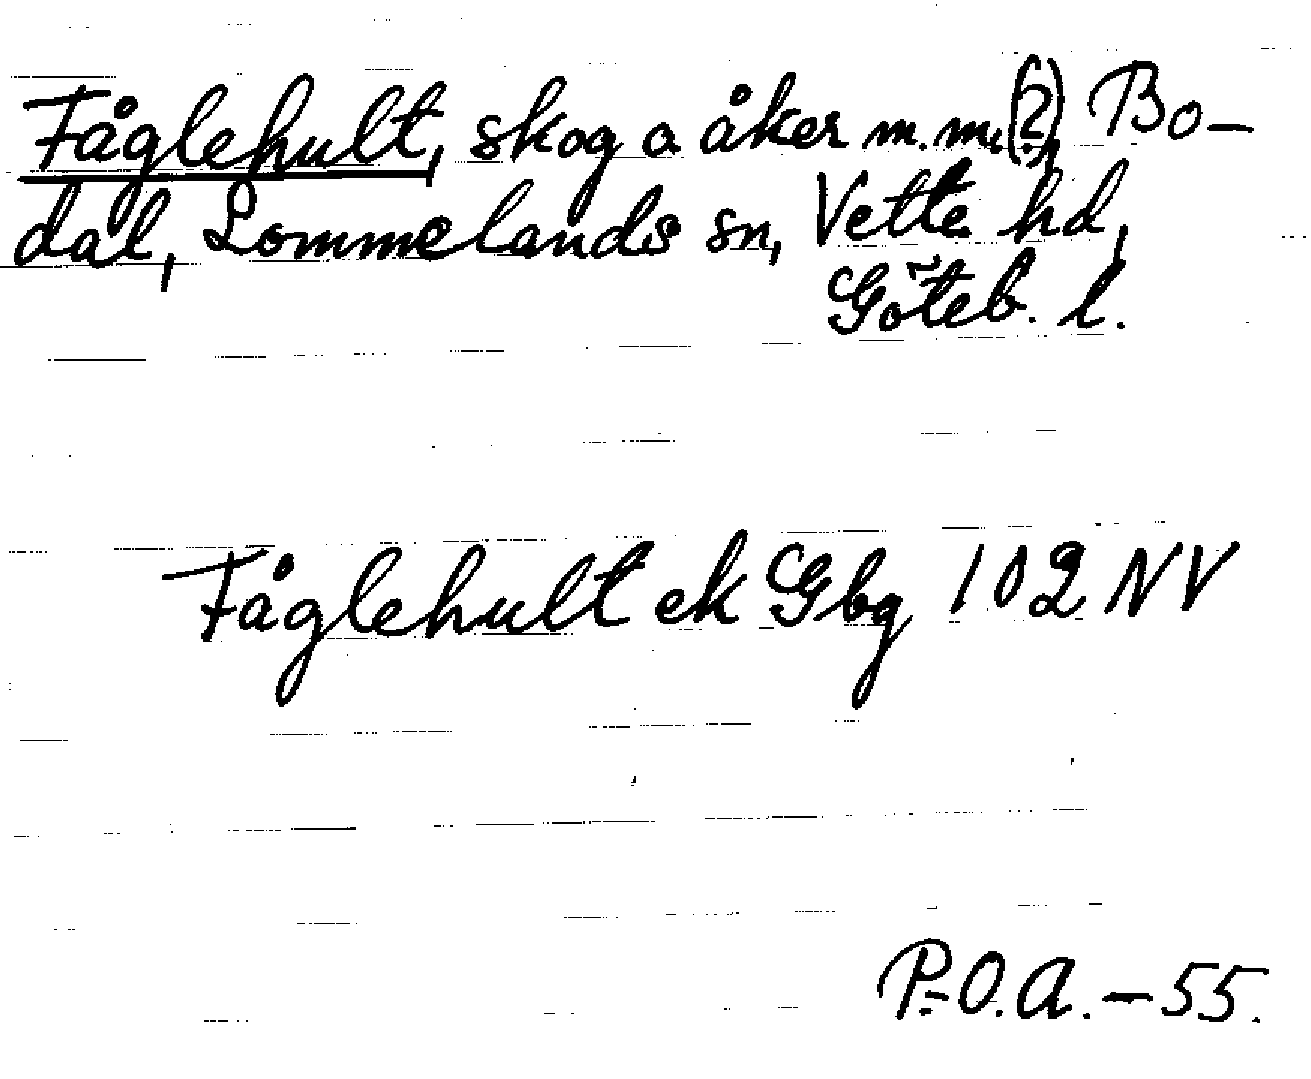 Fåglehult, skog o åker m.m. (?), Bo-
dal, Lommelands sn, Vette hd,
Göteb. l.
Fåglehult ek Gbg 102 NV
P.O.A. - 55.